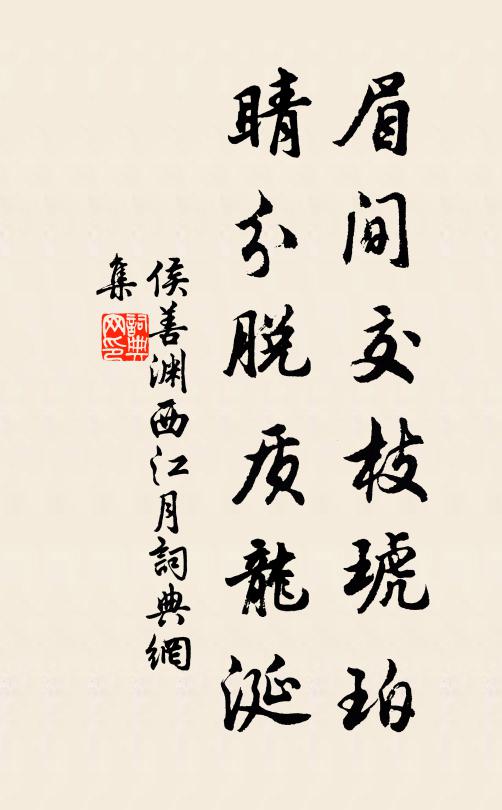 眉间交枝琥珀
睛分脱质龍涎
侯善渊西江月詞典網
集
詞典
网印